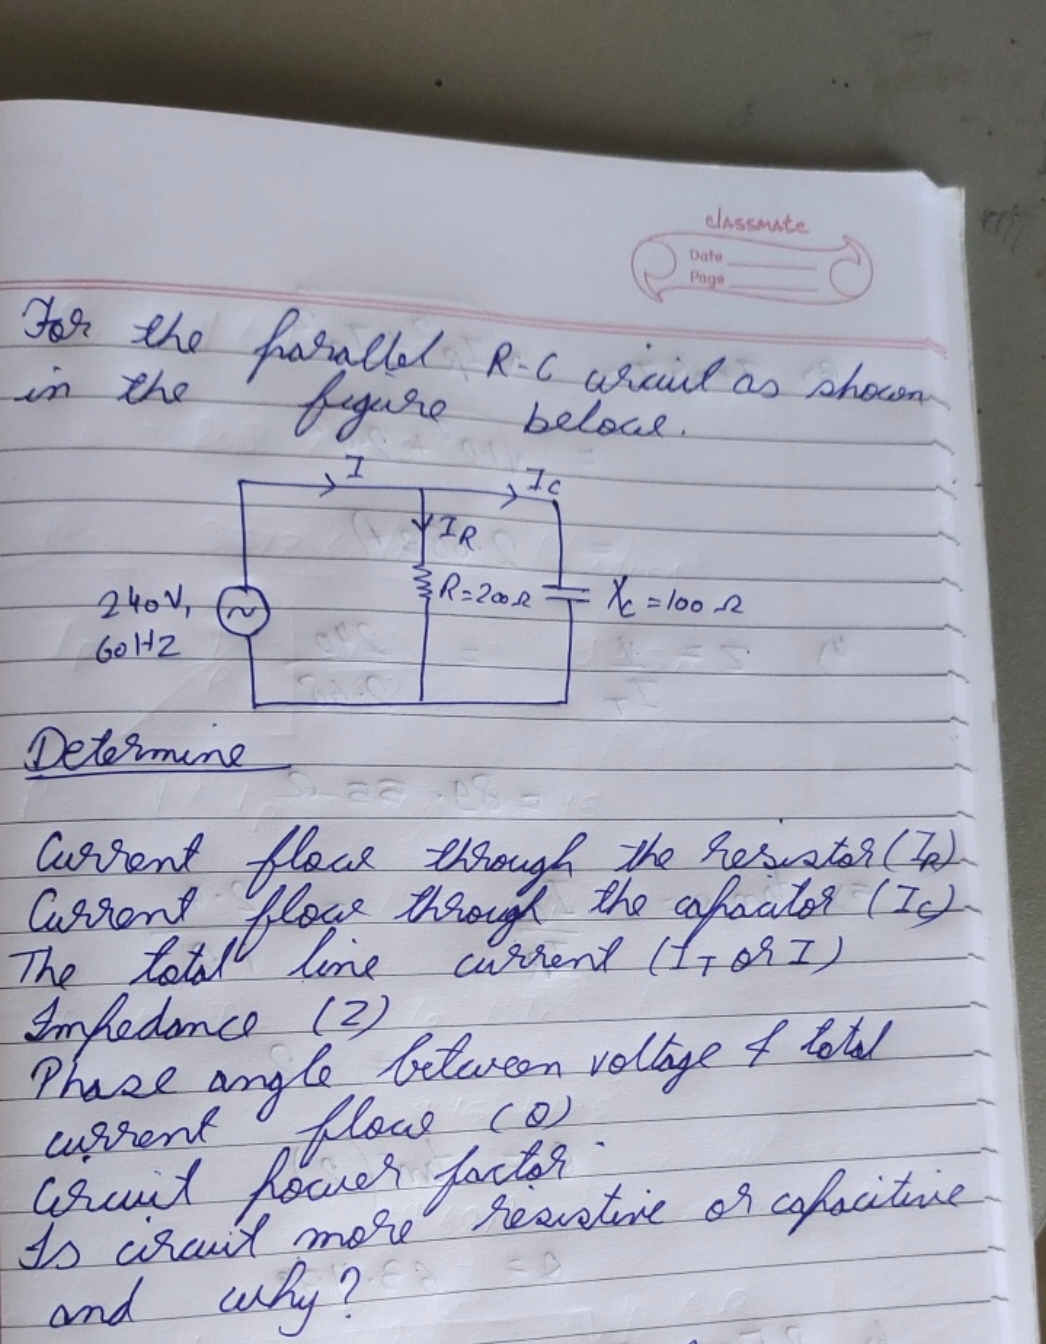 classmate
Date
Page
For the parallel R-C circuit as shown
in the figure below.
I
Ic
IR
240V,
60HZ
R=200Ω
Xc=100Ω
Determine
Current flow through the resistor (IR)
Current flow through the capacitor (Ic)
The total line current (IT or I)
Impedance (Z)
Phase angle between voltage & total
current flow (θ)
Circuit power factor
Is circuit more resistive or capacitive
and why?